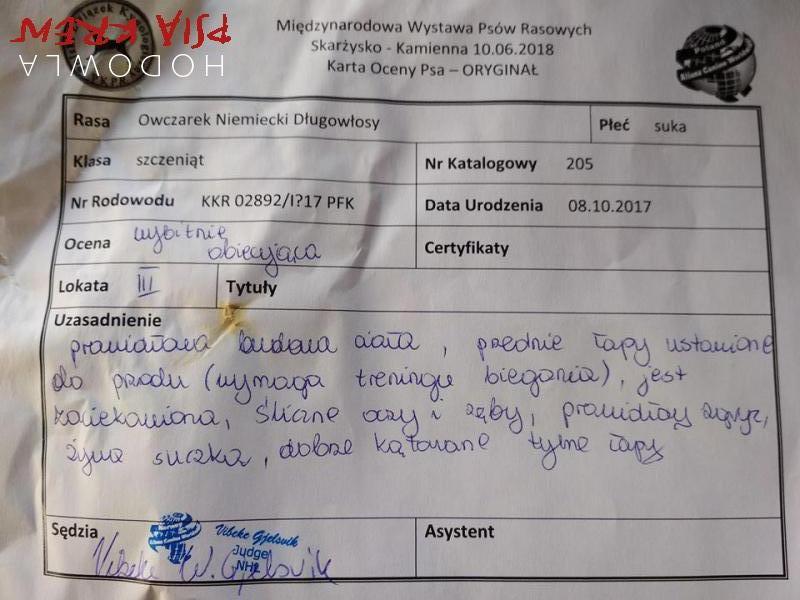 Międzynarodowa Wystawa Psów Rasowych
Skarżysko - Kamienna 10.06.2018
Karta Oceny Psa – ORYGINAŁ
HODOWLA
PSIA KREW
Rasa Owczarek Niemiecki Długowłosy Płeć suka
Klasa szczeniąt Nr Katalogowy 205
Nr Rodowodu KKR 02892/I?17 PFK Data Urodzenia 08.10.2017
Ocena wybitnie obiecująca Certyfikaty
Lokata III Tytuły
Uzasadnienie
prawidłowa budowa ciała, przednie łapy ustawione
do przodu (wymaga treningu biegania), jest
zaciekawiona, śliczne oczy i zęby, prawidłowy zgryz,
żywa suczka, dobrze kątowane tylne łapy
Sędzia Vibeke Gjelsvik Asystent
Judge
Vibeke W. Gjelsvik